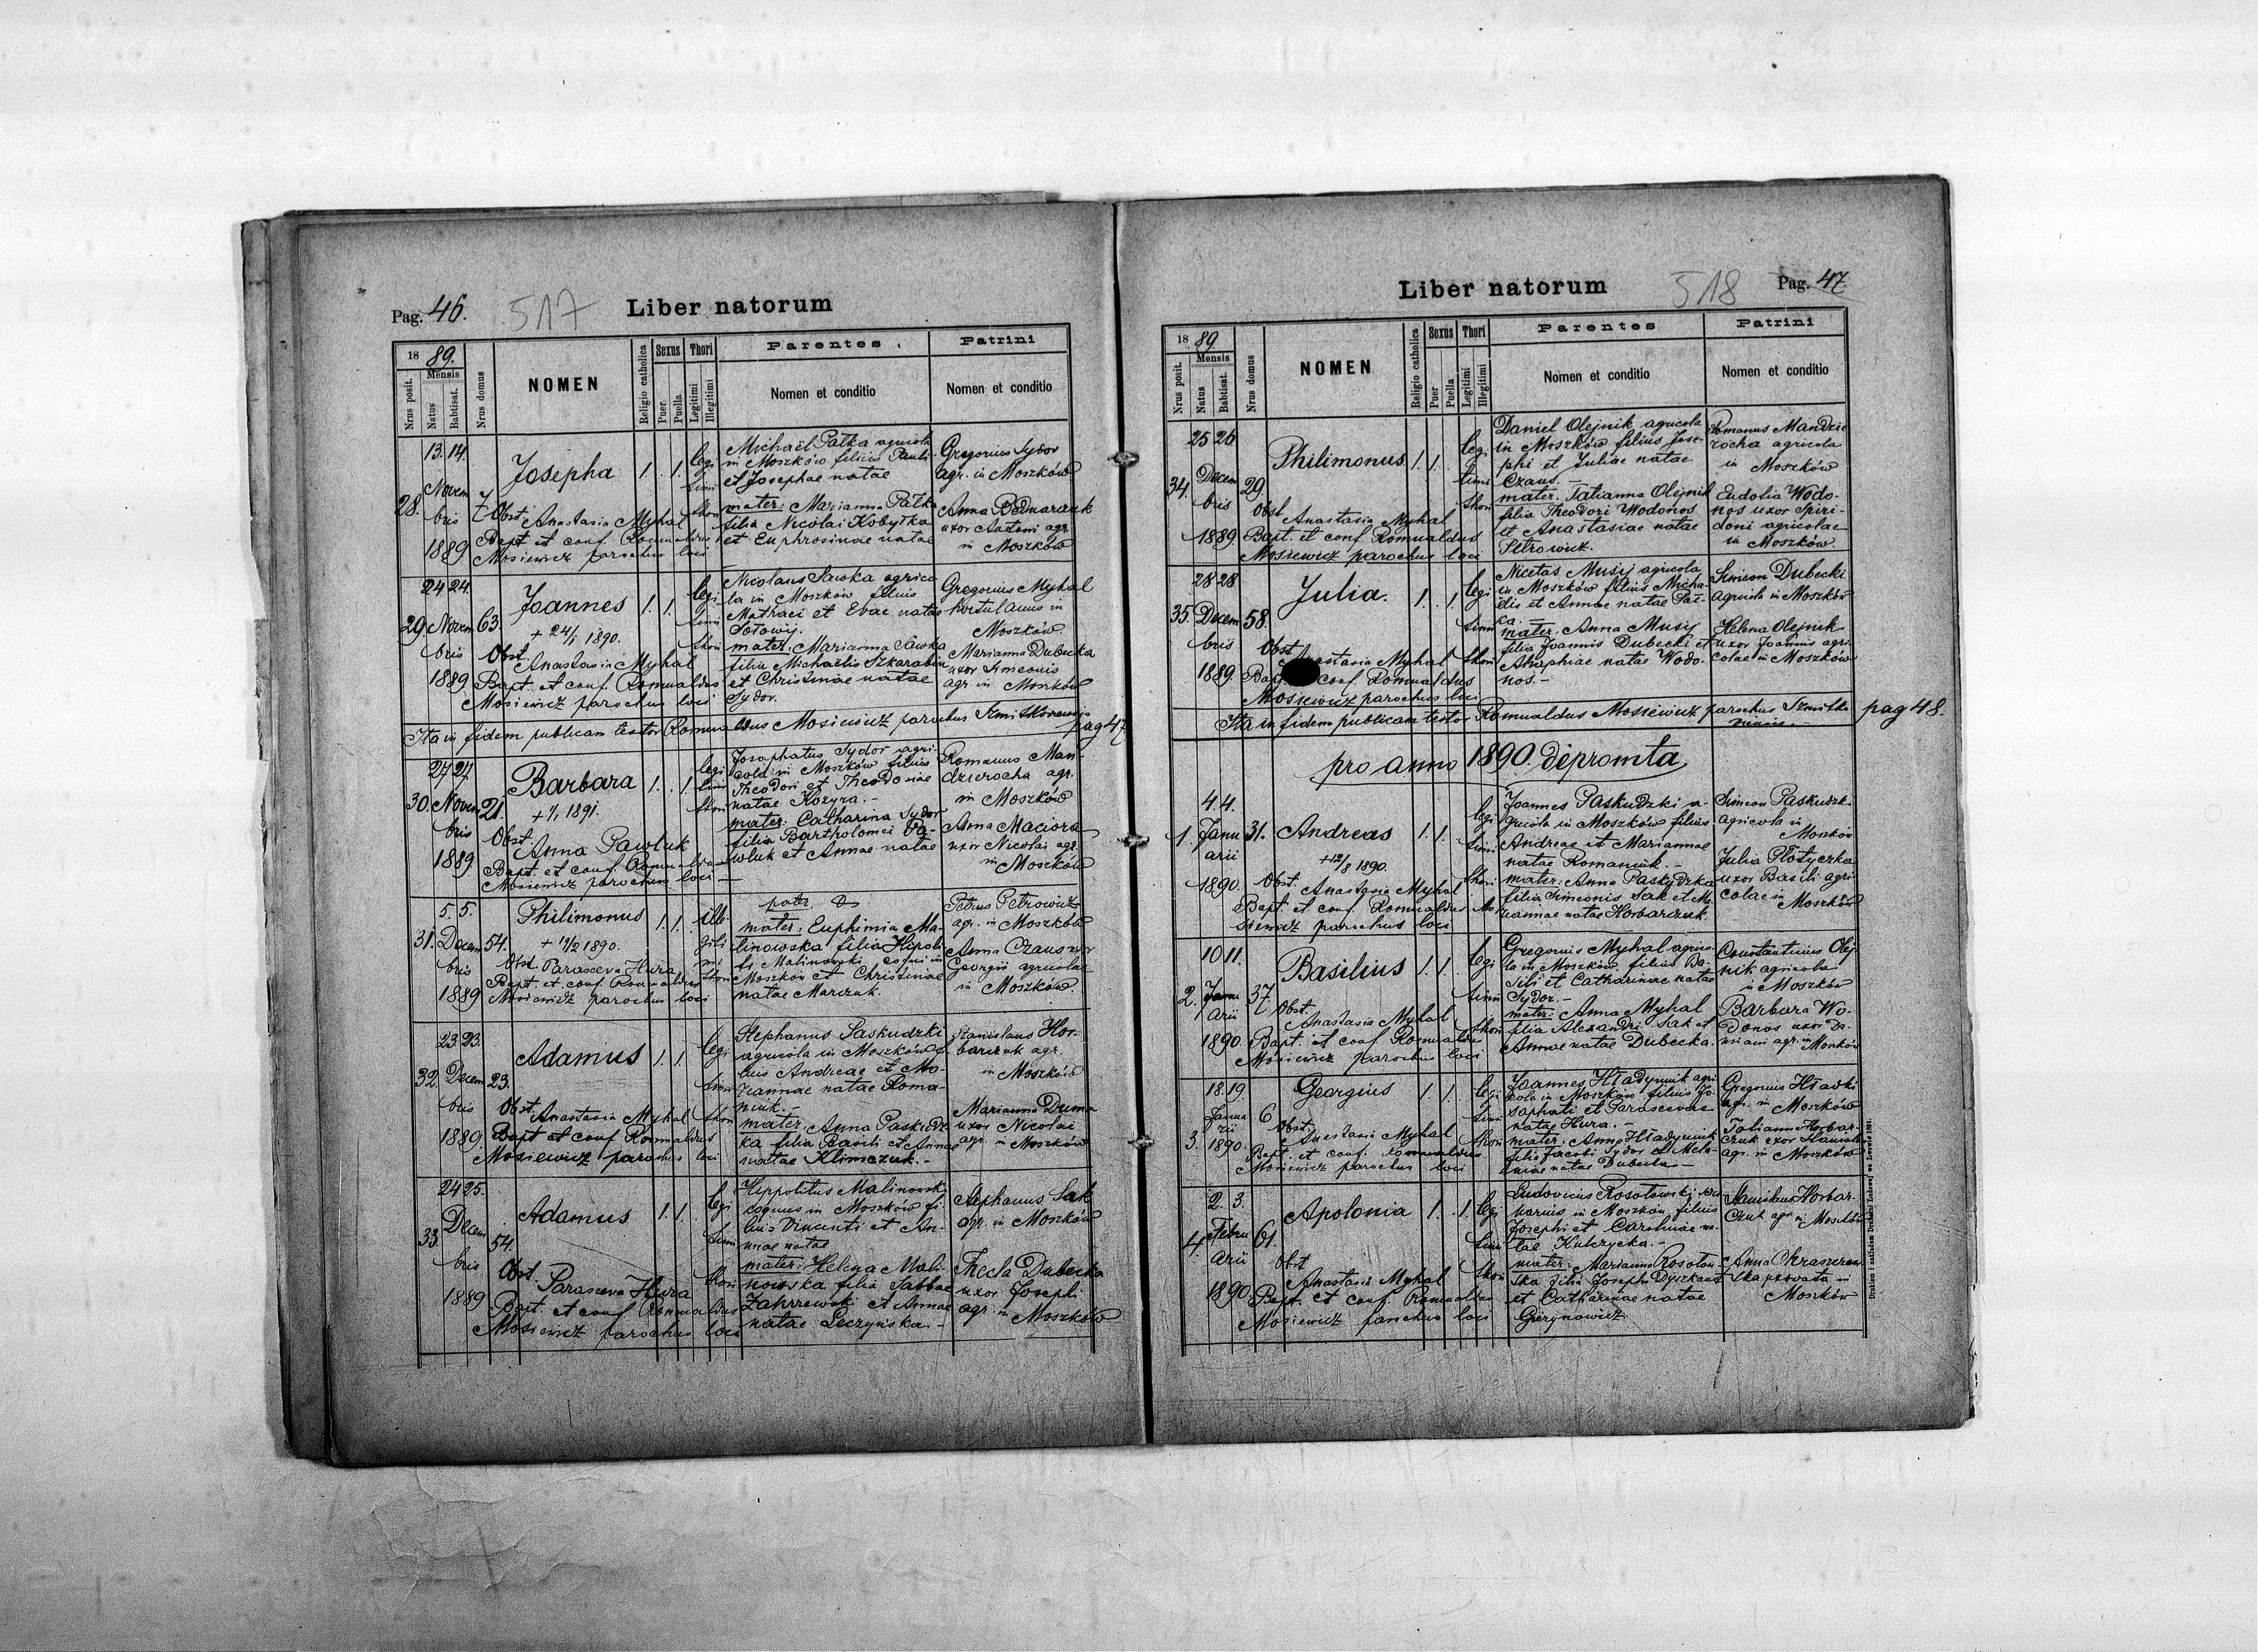 Pag. 46.
517
Liber natorum
18 89.
Mensis
Nrus posit.
Natus
Babtisat.
Nrus domus
NOMEN
Religio catholica
Sexus
Puer
Puella
Thori
Legitimi
Illegitimi
Parentes
Nomen et conditio
Patrini
Nomen et conditio
28.
13. 14.
Novem
bris
1889
7
Josepha
1. 1.
legi
timi
thori
Obst. Anastasia Myhal
Bapt. et conf. Romualdus
Mosiewicz parochus loci
Michaël Pałka agricola
in Moszków filius Pauli
et Josephae natae
mater: Marianna Pałka
filia Nicolai Kobyłka
et Euphrosinae natae
Gregorius Sydor
agr. in Moszków
Anna Bednarczuk
uxor Antoni agr.
in Moszków
29.
24 24.
Novem
bris
1889
63.
Joannes
+ 24/1 1890.
1. 1.
legi
timi
thori
Obst.
Anastasia Myhal
Bapt. et conf. Romualdus
Mosiewicz parochus loci
Nicolaus Sawka agrico
la in Moszków filius
Mathaei et Evae natae
Sołowij.
mater: Marianna Sawka
filia Michaëlis Szkarabin
et Christinae natae
Sydor.
Gregorius Myhal
hortulanus in
Moszków.
Marianna Dubecka
uxor Simeonis
agr. in Moszków
Ita in fidem publicam testor Romualdus Mosiewicz parochus
pag 47.
30.
27 27
Novem
bris
1889
21.
Barbara
+ 1/1 1891.
1. 1.
legi
timi
thori
Obst.
Anna Pawluk
Bapt. et conf. Romualdus
Mosiewicz parochus loci
Josaphatus Sydor agri-
cola in Moszków filius
Theodori et Theodosiae
natae Kozyra.-
mater: Catharina Sydor
filia Bartholomei Pa-
wluk et Annae natae
Romanus Man-
dzierocha agr.
in Moszków
Anna Maciora
uxor Nicolai agr.
in Moszków
31.
5. 5.
Decem
bris
1889
54.
Philimonus
+ 11/2 1890.
1. 1.
ille
giti
mi
thori
Obst. Parasceva Hura
Bapt. et conf. Romualdus
Mosiewicz parochus loci
patr.
mater: Euphimia Ma-
linowska filia Hipoli-
ti Malinowski coqui in
Moszków et Christinae
natae Marczuk.
Petrus Petrowicz
agr. in Moszków
Anna Czaus uxor
Georgii agricolae
in Moszków.
32.
23 23.
Decem
bris
1889
23.
Adamus
1. 1.
legi
timi
thori
Obst. Anastasia Myhal
Bapt. et conf. Romualdus
Mosiewicz parochus loci
Stephanus Paskudzki
agricola in Moszków fi-
lius Andreae et Ma-
riannae natae Roma-
niuk.-
mater: Anna Paskudz
ka filia Basili et Annae
natae Klimczuk.-
Stanislaus Hor-
barczuk agr.
in Moszków
Marianna Duma
uxor Nicolai
agr. in Moszków
33.
24 25.
Decem
bris
1889
54.
Adamus
1. 1.
legi
timi
thori
Obst.
Parasceva Hura
Bapt. et conf. Romualdus
Mosiewicz parochus loci
Hippolitus Malinowski
coquus in Moszków fi-
lius Vincenti et An-
nae natae
mater: Helena Mali-
nowska filia Sabbae
Zakrzewski et Annae
natae Leczyńska.-
Stephanus Sak
agr. in Moszków
Thecla Dubecka
uxor Josephi
agr. in Moszków
Liber natorum
518
Pag. 47
18 89.
Mensis
Nrus posit.
Natus
Babtisat.
Nrus domus
NOMEN
Religio catholica
Sexus
Puer
Puella
Thori
Legitimi
Illegitimi
Parentes
Nomen et conditio
Patrini
Nomen et conditio
34.
25 26
Decem
bris
1889
29.
Philimonus
1. 1.
legi
timi
thori
Obst.
Anastasia Myhal
Bapt. et conf. Romualdus
Mosiewicz parochus loci
Daniel Olejnik agricola
in Moszków filius Jose-
phi et Juliae natae
Czaus.-
mater: Tatianna Olejnik
filia Theodori Wodonos
et Anastasiae natae
Petrowicz.
Romanus Mandzie
rocha agricola
in Moszków
Eudotia Wodo-
nos uxor Spiri-
doni agricolae
in Moszków.
35.
28 28
Decem
bris
1889
58.
Julia.
1. 1.
legi
timi
thori
Obst.
Myhal
conf. Romualdus
Mosiewicz parochus loci
Nicetas Musij agricola
in Moszków filius Micha-
ëlis et Annae natae Pał-
ka.
mater: Anna Musij
filia Joannis Dubecki et
Ahaphiae natae Wodo-
nos.-
Simeon Dubecki
agricola in Moszków
Helena Olejnik
uxor Joannis agri-
colae in Moszków
Ita in fidem publicam testor Romualdus Mosiewicz parochus
pag 48.
pro anno 1890. depromta
1.
4. 4.
Janu
arii
1890.
31.
Andreas
+ 12/8 1890.
1. 1.
legi
timi
thori
Obst.
Anastasia Myhal
Bapt. et conf. Romualdus Mo-
siewicz parochus loci
Joannes Paskudzki a-
gricola in Moszków filius
Andreae et Mariannae
natae Romaniuk.-
mater: Anna Paskudzka
filia Simeonis Sak et Ma
riannae natae Horbarczuk.
Simeon Paskudzki
agricola in
Moszków
Julia Płotyczka
uxor Basili agri-
colae in Moszków
2.
10 11.
Janu
arii
1890.
37.
Basilius
1. 1.
legi
timi
thori
Obst.
Anastasia Myhal
Bapt. et conf. Romualdus
Mosiewicz parochus loci
Gregorius Myhal agrico-
la in Moszków filius Ba-
sili et Catharinae natae
Sydor.-
mater: Anna Myhal
filia Alexandri Sak et
Annae natae Dubecka.
Constantinus Olej-
nik agricola
in Moszków
Barbara Wo-
donos uxor Da-
miani agr. in Moszków
3.
18. 19.
Janua
rii
1890.
6
Georgius
1. 1.
legi
timi
thori
Obst.
Anastasia Myhal
Bapt. et conf. Romualdus
Mosiewicz parochus loci
Joannes Hładyniuk agri
cola in Moszków filius Jo-
saphati et Parascevae
natae Hura.-
mater: Anna Hładyniuk
filia Jacobi Sydor et Mela-
niae natae Dubecka-
Gregorius Hładki
agr. in Moszków
Tatianna Horbar-
czuk uxor Stanislai
agr. in Moszków
4.
2. 3.
Febru
arii
1890.
61.
Apolonia
1. 1.
legi
timi
thori
Obst
Anastasia Myhal
Bapt. et conf. Romualdus
Mosiewicz parochus loci
Ludovicus Rosołowski
in Moszków filius
Josephi et Carolinae na-
tae Kulczycka.-
mater: Marianna Rosołow-
ska filia Josephi Dyszkant
et Catharinae natae
Gierynowicz
Stanislaus Horbar-
czuk agr. in Moszków
Anna
privata in
Moszków